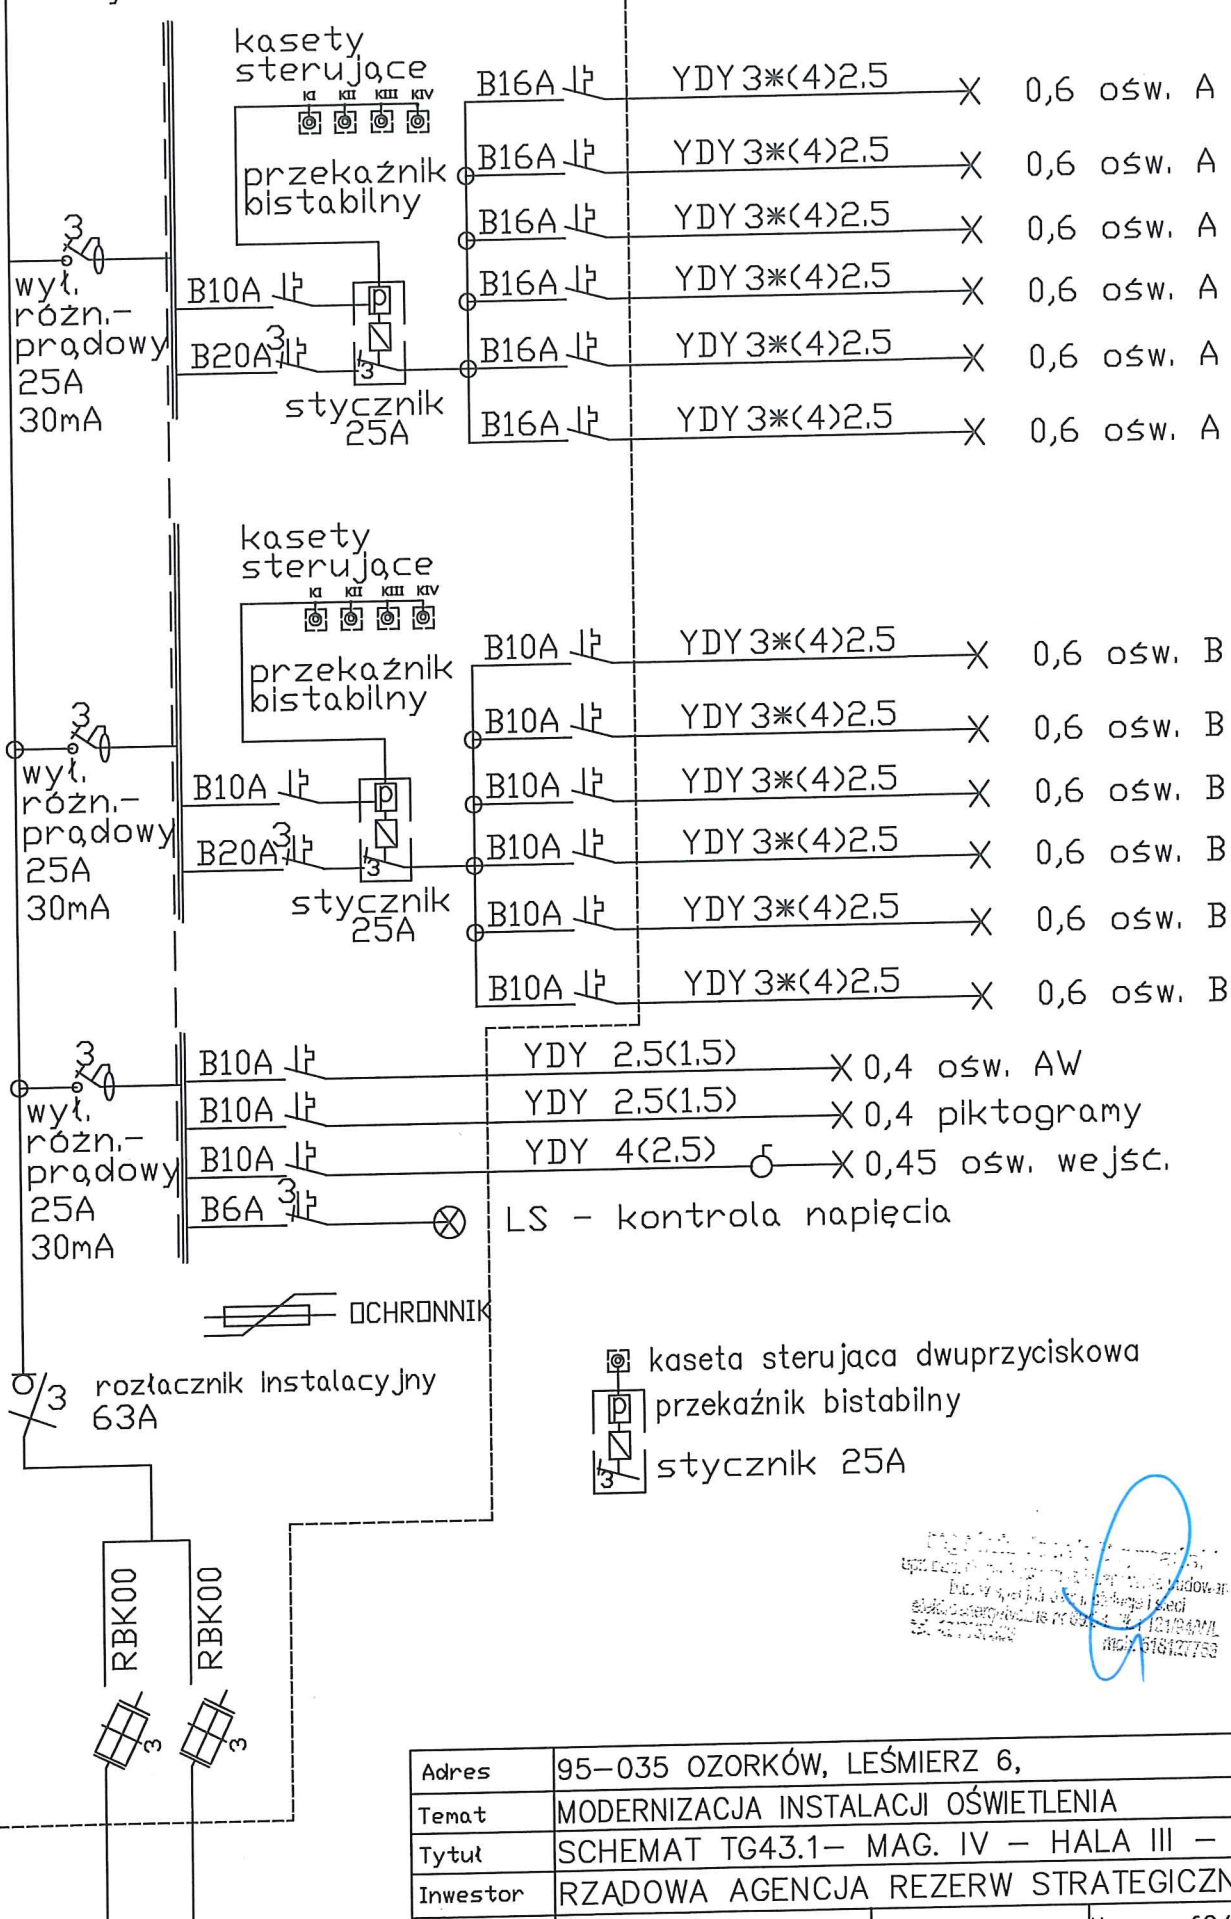 kasety
sterujące
KI KII KIII KIV
przekaźnik
bistabilny
3
wył.
różn.-
prądowy
25A
30mA
B10A
p
B20A 3
3
stycznik
25A
B16A YDY 3*(4)2.5 0,6 ośw. A
B16A YDY 3*(4)2.5 0,6 ośw. A
B16A YDY 3*(4)2.5 0,6 ośw. A
B16A YDY 3*(4)2.5 0,6 ośw. A
B16A YDY 3*(4)2.5 0,6 ośw. A
B16A YDY 3*(4)2.5 0,6 ośw. A
kasety
sterujące
KI KII KIII KIV
przekaźnik
bistabilny
3
wył.
różn.-
prądowy
25A
30mA
B10A
p
B20A 3
3
stycznik
25A
B10A YDY 3*(4)2.5 0,6 ośw. B
B10A YDY 3*(4)2.5 0,6 ośw. B
B10A YDY 3*(4)2.5 0,6 ośw. B
B10A YDY 3*(4)2.5 0,6 ośw. B
B10A YDY 3*(4)2.5 0,6 ośw. B
B10A YDY 3*(4)2.5 0,6 ośw. B
3
wył.
różn.-
prądowy
25A
30mA
B10A YDY 2.5(1.5) 0,4 ośw. AW
B10A YDY 2.5(1.5) 0,4 piktogramy
B10A YDY 4(2.5) 0,45 ośw. wejść.
B6A 3 LS - kontrola napięcia
OCHRONNIK
3 rozłacznik instalacyjny
63A
kaseta sterujaca dwuprzyciskowa
p przekaźnik bistabilny
3 stycznik 25A
RBK00 RBK00
3 3
Adres 95-035 OZORKÓW, LEŚMIERZ 6,
Temat MODERNIZACJA INSTALACJI OŚWIETLENIA
Tytuł SCHEMAT TG43.1- MAG. IV - HALA III -
Inwestor RZADOWA AGENCJA REZERW STRATEGICZN